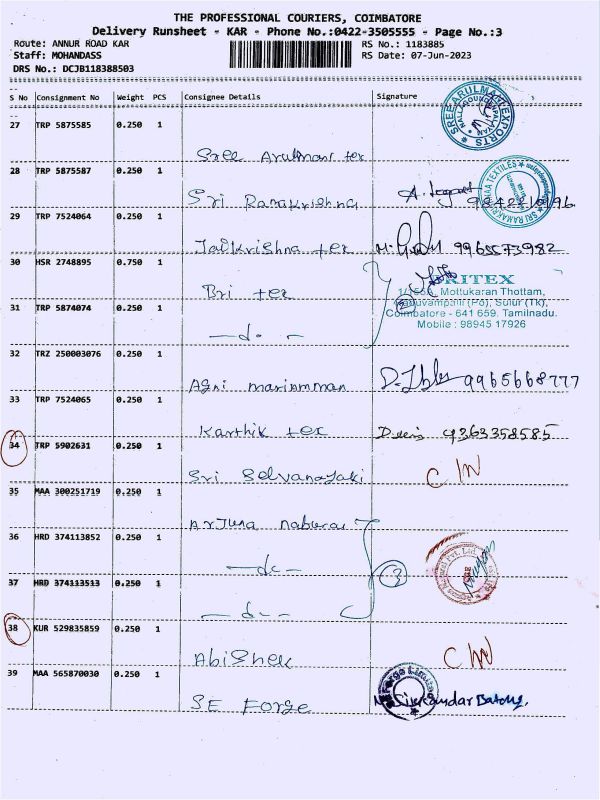 THE PROFESSIONAL COURIERS, COIMBATORE
Delivery Runsheet - KAR - Phone No.:0422-3505555 - Page No.:3
Route: ANNUR ROAD KAR RS No.: 1183885
Staff: MOHANDASS RS Date: 07-Jun-2023
DRS No.: DCJB118388503
S No Consignment No Weight PCS Consignee Details Signature
27 TRP 5875585 0.250 1
Sree Arulmani tex
SREE ARULMANI EXPORTS
28 TRP 5875587 0.250 1
Sri Ramakrishna
29 TRP 7524064 0.250 1
Jaikrishna tex 9965573982
30 HSR 2748895 0.750 1
Bri tex
BRITEX
1/155A, Mottukaran Thottam,
(Po), Sulur (TK),
Coimbatore - 641 659. Tamilnadu.
Mobile : 98945 17926
31 TRP 5874074 0.250 1
—d.—
2
32 TRZ 250003076 0.250 1
Agni mariamman 9965668777
33 TRP 7524065 0.250 1
Karthik tex 9363358585
34 TRP 5902631 0.250 1
Sri Selvanayaki
35 MAA 300251719 0.250 1
Arjuna
36 HRD 374113852 0.250 1
—do—
3
37 HRD 374113513 0.250 1
—d.—
38 KUR 529835859 0.250 1
Abishek
39 MAA 565870030 0.250 1
SE Forge